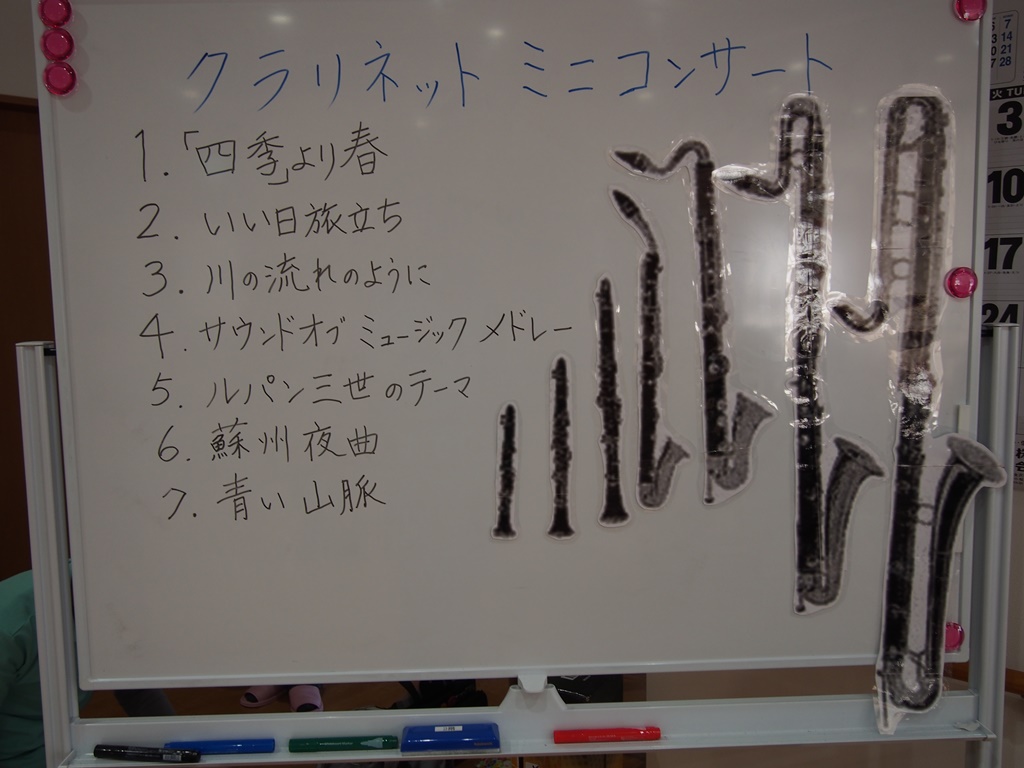 クラリネット ミニコンサート
1.「四季」より春
2. いい日旅立ち
3. 川の流れのように
4. サウンドオブ ミュージック メドレー
5. ルパン三世のテーマ
6. 蘇州夜曲
7. 青い山脈
6 7
13 14
20 21
27 28
火 TUE
3
10
17
24